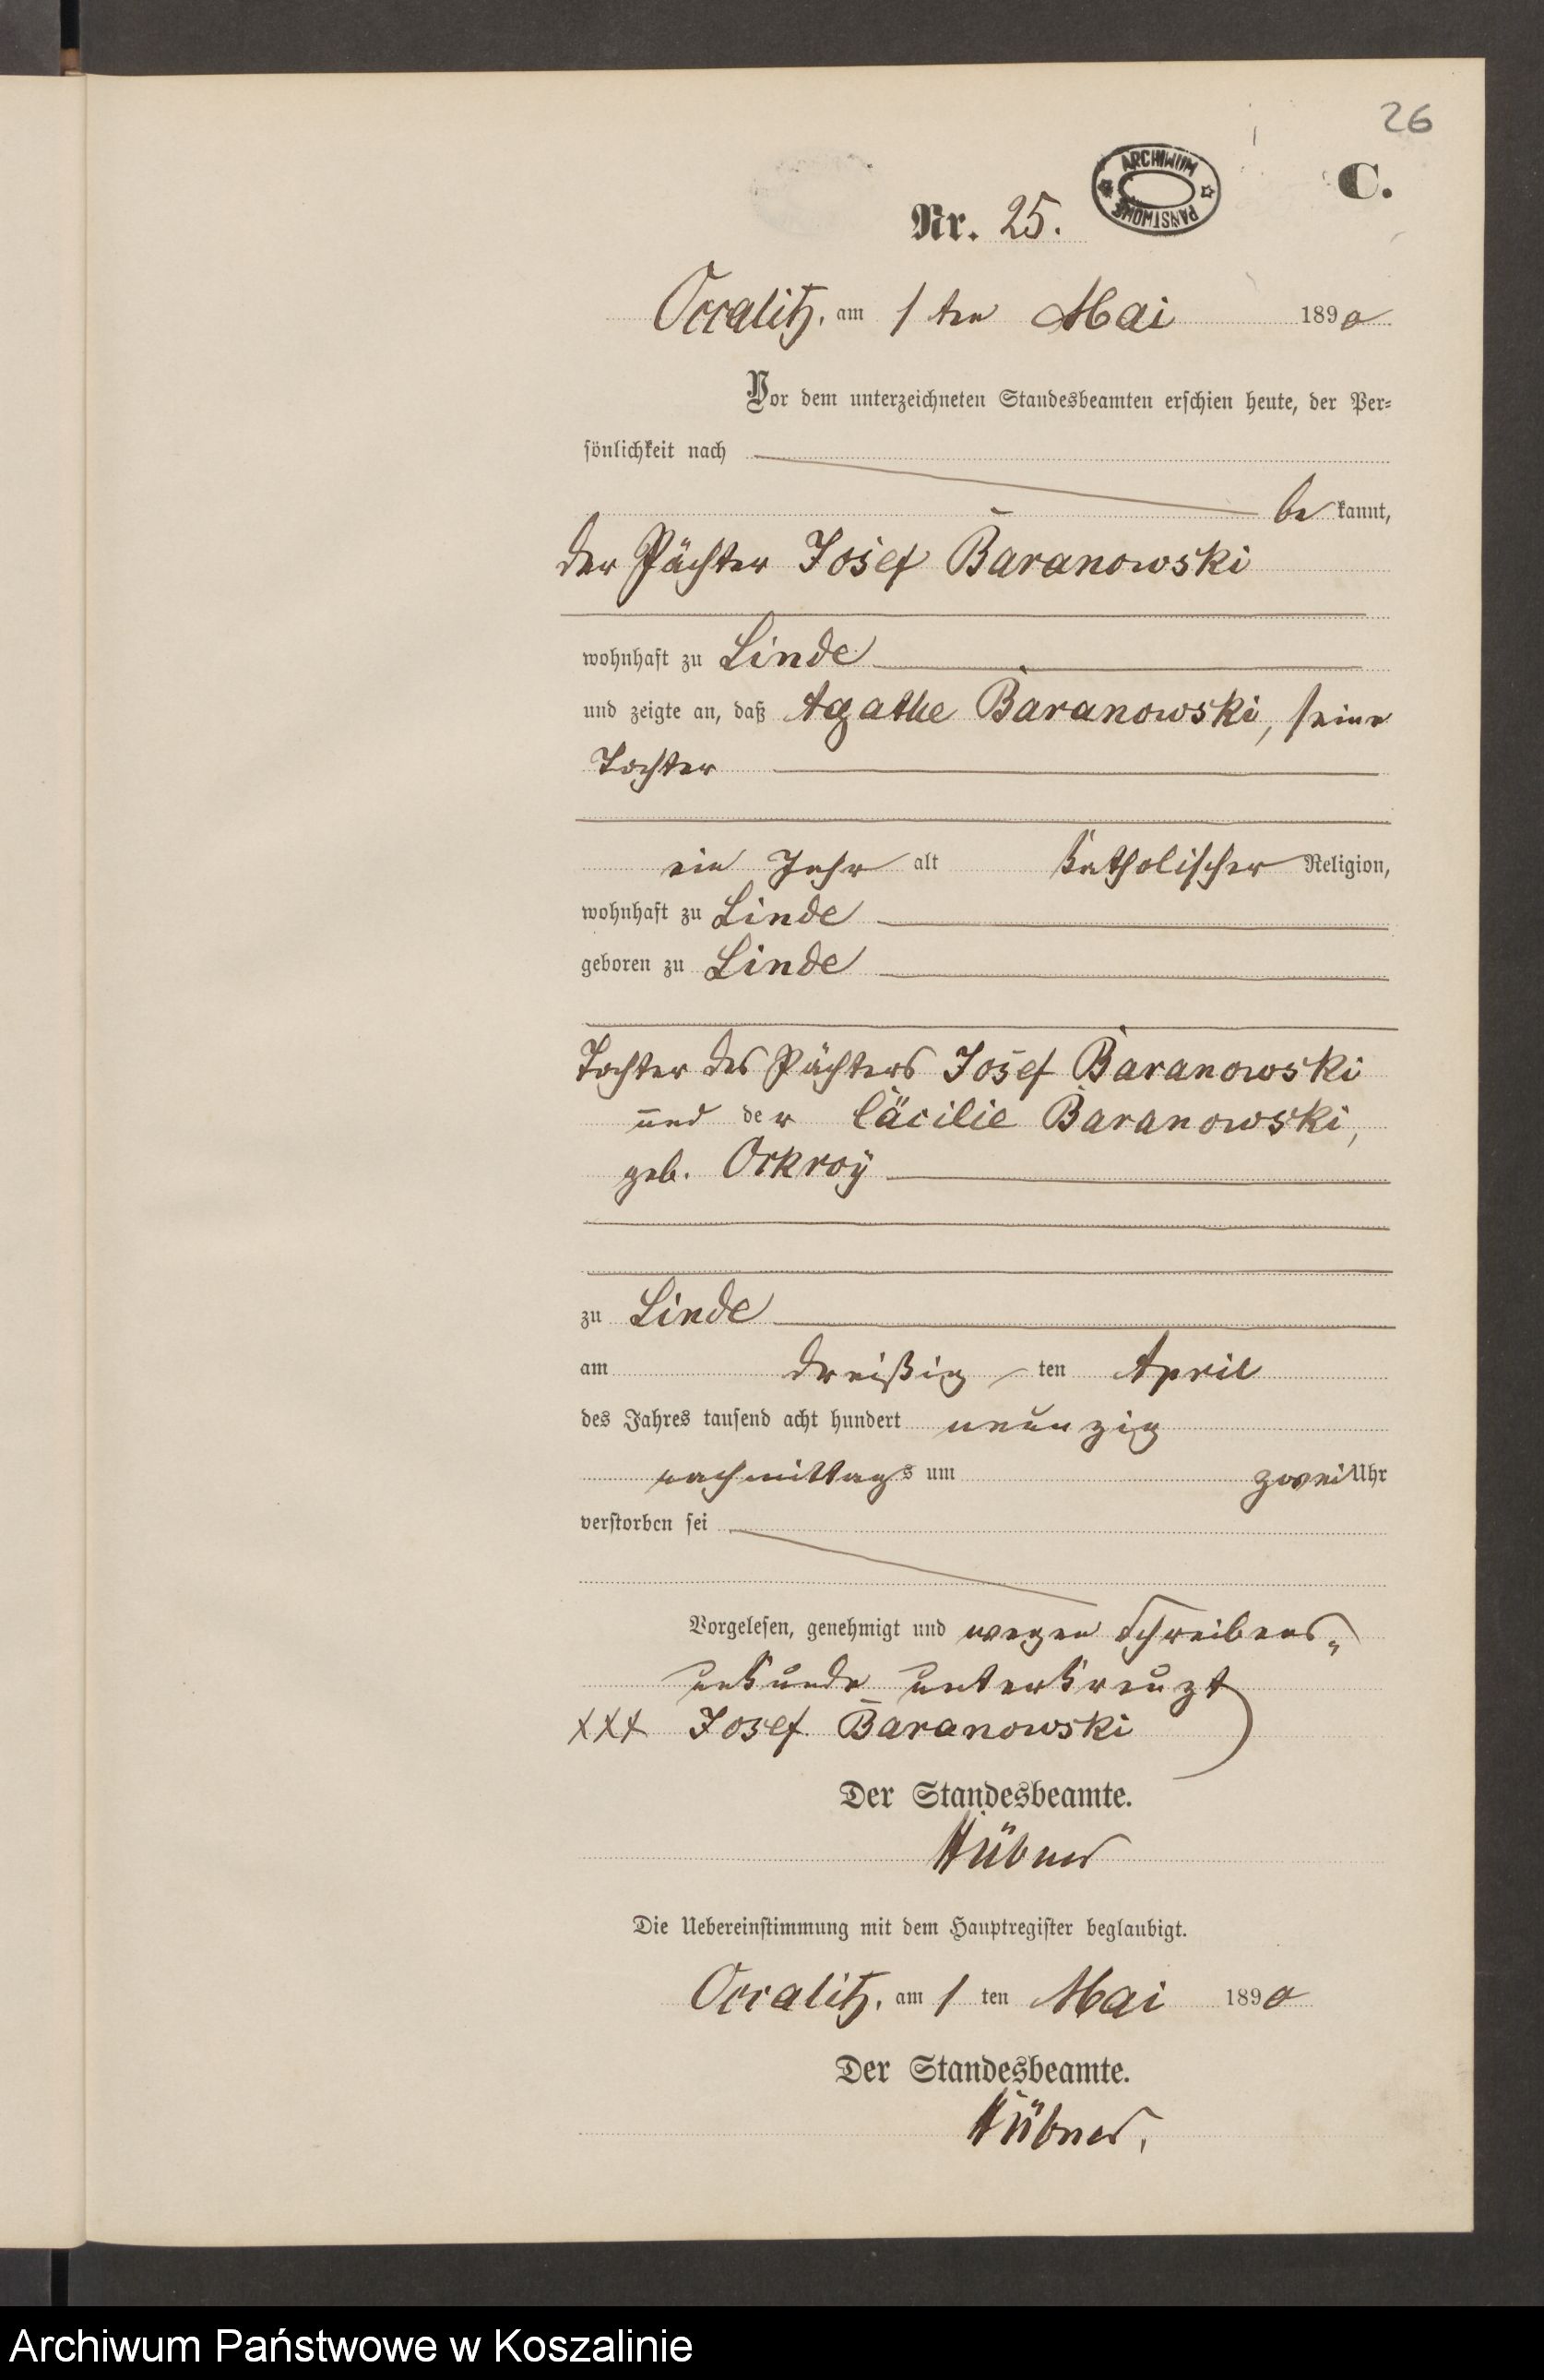 26
ARCHIWUM
PAŃSTWOWE
C.
Nr. 25.
Occalitz, am 1 ten Mai 1890
Vor dem unterzeichneten Standesbeamten erschien heute, der Per=
sönlichkeit nach
be kannt,
der Pächter Josef Baranowski
wohnhaft zu Linde
und zeigte an, daß Agathe Baranowski, seine
Tochter
ein Jahr alt katholischer Religion,
wohnhaft zu Linde
geboren zu Linde
Tochter des Pächters Josef Baranowski
und der Cäcilie Baranowski,
geb. Orkroÿ
zu Linde
am dreißig ten April
des Jahres tausend acht hundert neunzig
nachmittags um zwei Uhr
verstorben sei
Vorgelesen, genehmigt und wegen Schreibens=
unkunde unterkreuzt
XXX Josef Baranowski
Der Standesbeamte.
Hübner
Die Uebereinstimmung mit dem Hauptregister beglaubigt.
Occalitz, am 1 ten Mai 1890
Der Standesbeamte.
Hübner.
Archiwum Państwowe w Koszalinie